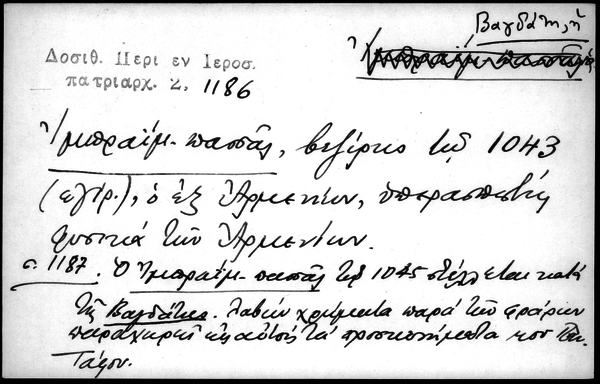 Βαγδάτη, ἡ
Δοσιθ. Περι εν Ιεροσ.
πατριαρχ. 2, 1186
Ἰμπραΐμ-πασᾶς, βεζίρης τῷ 1043
(ἐγίρ.), ὁ ἐξ Ἀρμενίων, ὑπερασπιστὴς
φυσικὰ τῶν Ἀρμενίων.
σ. 1187. Ὁ Ἰμπραΐμ-πασᾶς τῷ 1045 στέλλεται κατὰ
τῆς Βαγδάτης. Λαβὼν χρήματα παρὰ τῶν φράρων
παραχωρεῖ εἰς αὐτοὺς τὰ προσκυνήματα τοῦ
Τάφου.